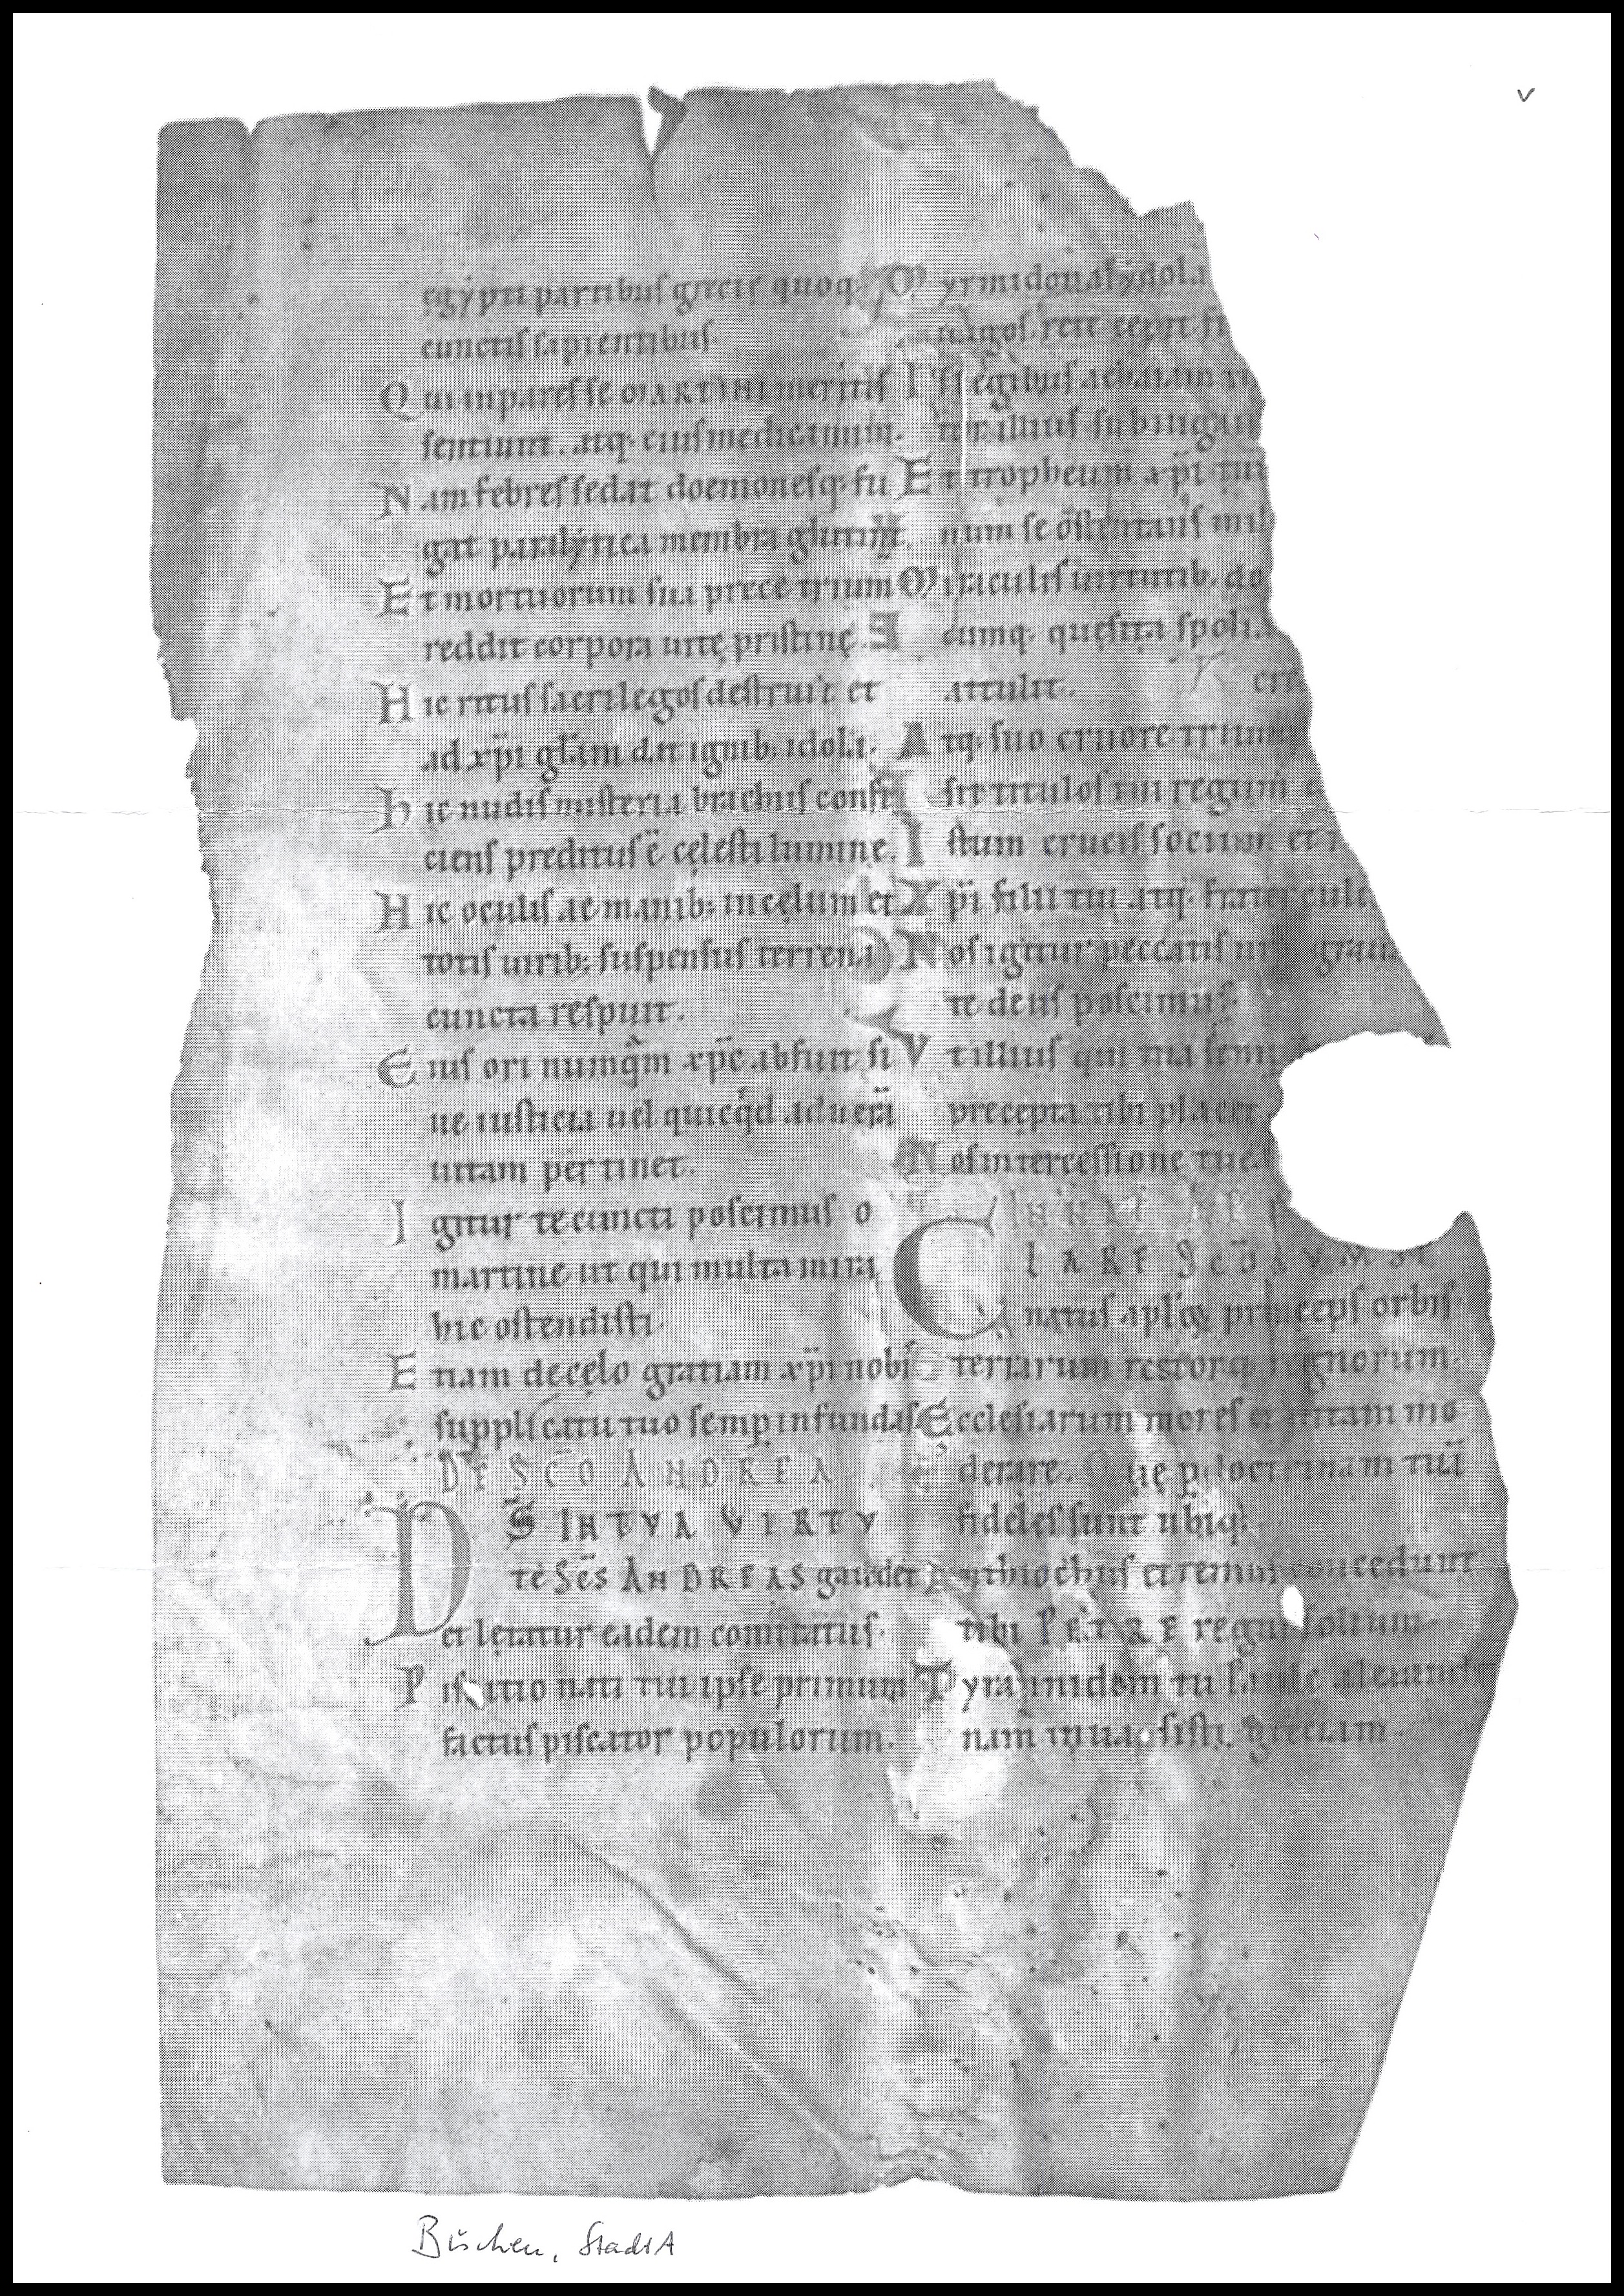 egypti partibuſ greciȩ quoq;
cunctiſ ſapientibuſ.
Qui inpareſ ſe MARTINI meritiſ
ſentiunt. atq; eiuſ medicamini.
Nam febreſ ſedat doemoneſq; fu
gat paralẏtica membra glutinat.
Et mortuorum ſua prece trium
reddit corpora uitȩ priſtinȩ.
Hic rituſ ſacrilegoſ deſtruit et
ad xp̄i gl̄am dat ignib; idola.
Hic nudiſ miſteria brachiiſ confi
cienſ preditus ē cȩleſti lumine.
Hic oculiſ ac manib; in cȩlum et
totiſ uirib; ſuſpenſuſ terrena
cuncta reſpuit.
Eiuſ ori numq̄m xp̄c abfuit ſi
ue iuſticia uel quicq̇d ad uerā
uitam pertinet.
Igitur te cuncti poſcimuſ o
martine ut qui multa mira
hic oſtendiſti.
Etiam de cȩlo gratiam xp̄i nobiſ
ſupplicatu tuo ſemp̲ infundaſ
DE SC̄O ANDREA
DS̄ IN TVA VIRTV
TE SC̄S ANDREAS gaudet
et lȩtatur eidem comitatuſ.
nati tui ipſe primum
factuſ piſcator populorum.
Myrmidonaſ ẏdola
magoſ rete cepit
regibuſ achaiam
illiuſ ſubiuga
Et tropheum xp̄i
num ſe oſtentauſ
Miraculiſ uirtutib; do
cumq; queſita ſpoli
attulit.
V
Atq; ſuo cruore
ſit tituloſ tui regum
Iſtum cruciſ ſocium et
Xp̄i filii tui atq;
Noſ igitur peccatiſ
te deuſ poſcimuſ.
Vt illiuſ qui tua
precepta tibi placet
Noſ interceſſione
CLARE SC̄O
natuſ apl̄oꝝ princepſ orbiſ
terrarum rectorq; regnorum.
Eccleſiarum moreſ et uitam mo
derare. Quȩ p̲ doctrinam tuā
fideleſ ſunt ubiq;.
Anthiochuſ et remuſ concedunt
tibi PETRE regni ſolium
Tyrannidem tu
nam inuaſiſti. greciam
v
Büchen, StadtA